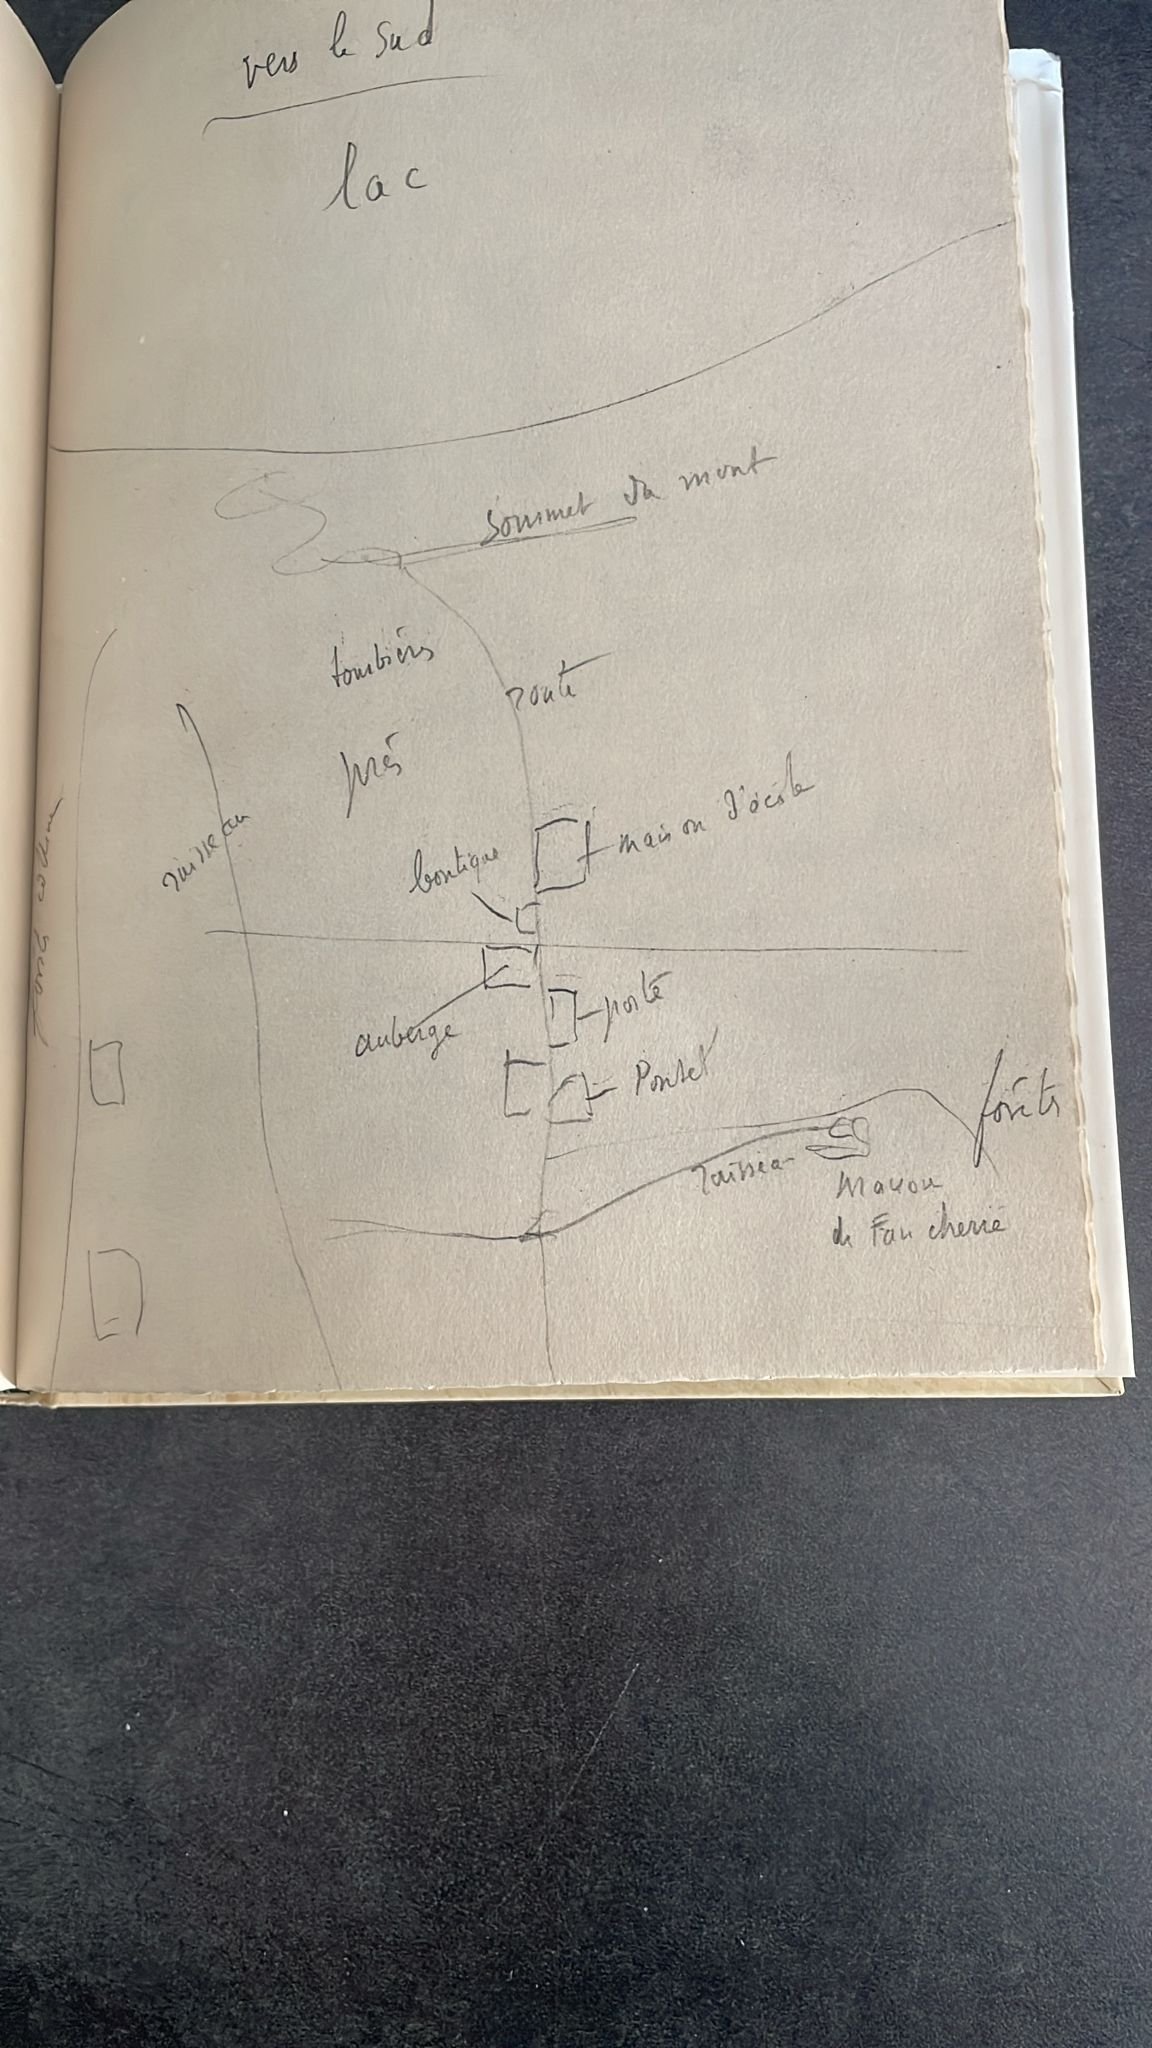 vers le sud
lac
sommet du mont
tourbières
route
prés
ruisseau
maison d'école
boutique
poste
auberge
Poutet
forêts
ruisseau
maison
de Faucherre